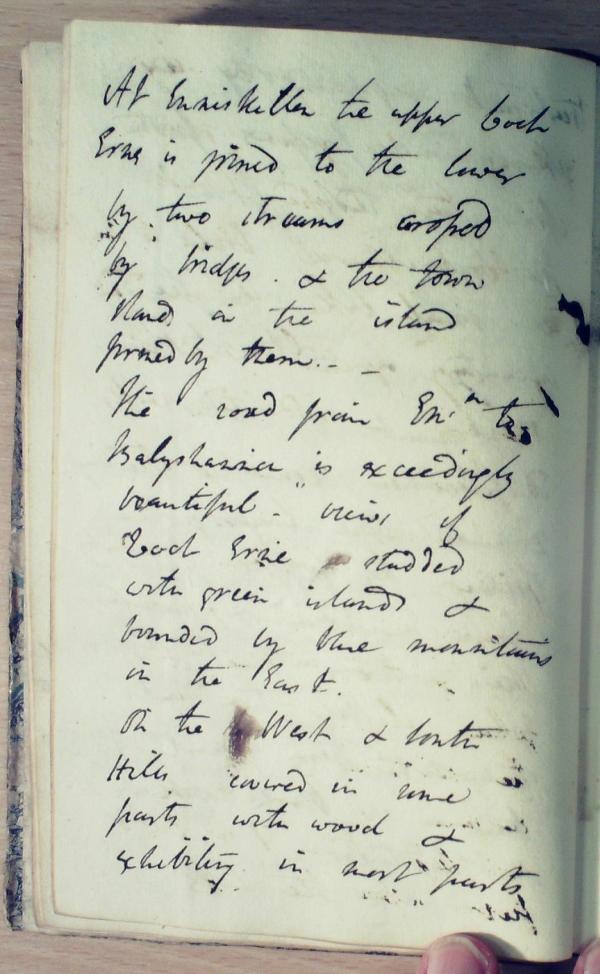 At Enniskillen the upper Loch
Erne is joined to the lower
by two streams crossed
by bridges. & the town
stands in the island
formed by them. - -
The road from En.n to
Balyshannon is exceedingly
beautiful - views of
Loch Erne studded
with green islands &
bounded by blue mountains
in the East.
On the West & South
Hills covered in some
parts with wood &
exhibiting in most parts